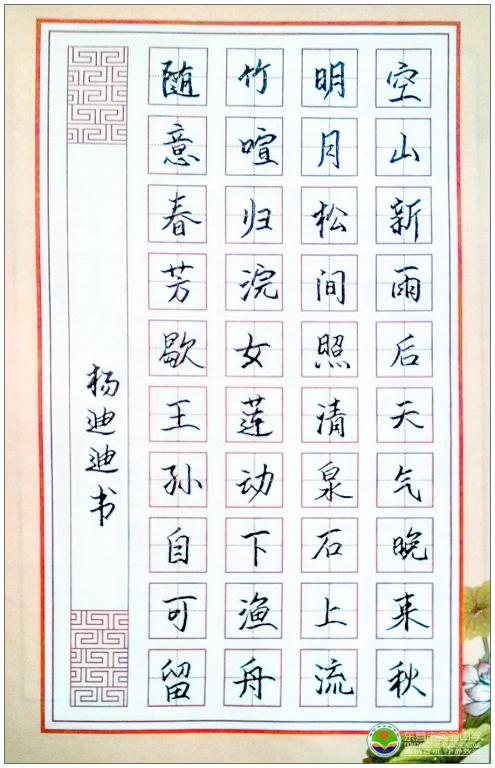 空山新雨后天气晚来秋
明月松间照清泉石上流
竹喧归浣女莲动下渔舟
随意春芳歇王孙自可留
杨迪迪书